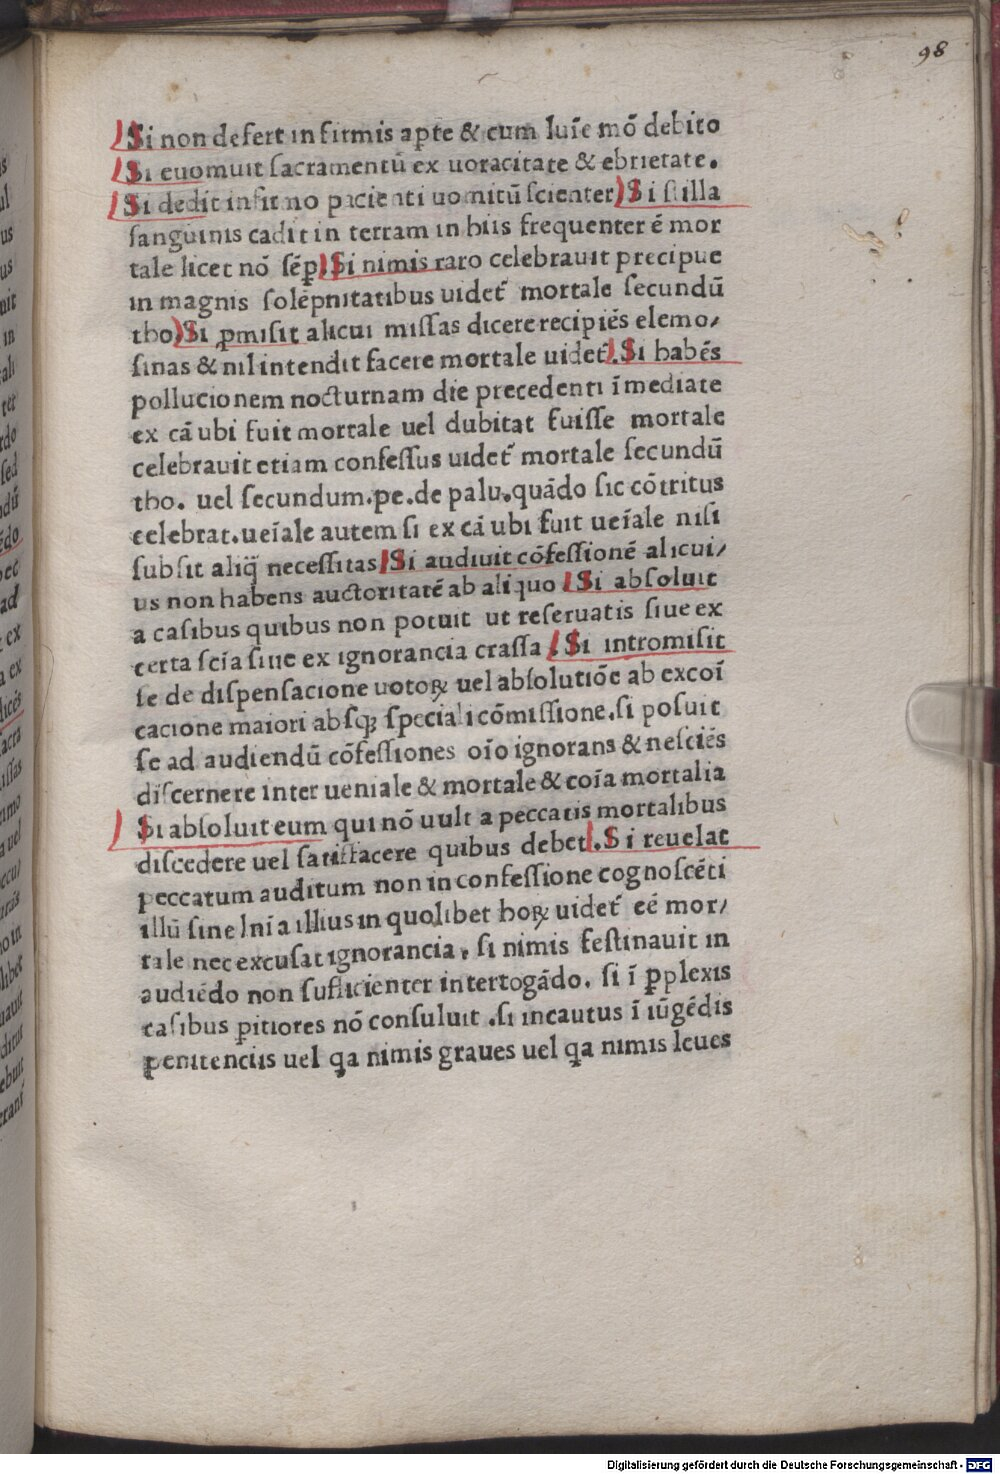 98
Si non defert infirmis apte & cum luīe mō debito
Si euomuit sacramentū ex uoracitate & ebrietate.
Si dedit infirmo pacienti uomitū scienter Si stilla
sanguinis cadit in terram in hiis frequenter ē mor
tale licet nō sēp. Si nimis raro celebrauit precipue
in magnis solēpnitatibus uidet᷑ mortale secundū
tho. Si ꝓmisit alicui missas dicere recipiēs elemo/
sinas & nil intendit facere mortale uidet᷑. Si habēs
pollucionem nocturnam die precedenti īmediate
ex cā ubi fuit mortale uel dubitat fuisse mortale
celebrauit etiam confessus uidet᷑ mortale secundū
tho. uel secundum.pe.de palu.quādo sic cōtritus
celebrat.ueīale autem si ex cā ubi fuit ueīale nisi
subsit aliq̄ necessitas Si audiuit cōfessionē alicui/
us non habens auctoritatē ab aliquo Si absoluit
a casibus quibus non potuit ut reseruatis siue ex
certa scīa siue ex ignorancia crassa. Si intromisit
se de dispensacione uotoꝝ uel absolutiōe ab excoī
cacione maiori absqꝫ speciali cōmissione.si posuit
se ad audiendū cōfessiones oīo ignorans & nesciēs
discernere inter ueniale & mortale & coīa mortalia
Si absoluit eum qui nō uult a peccatis mortalibus
discedere uel satisfacere quibus debet. Si reuelat
peccatum auditum non in confessione cognoscēti
illū sine lnīa illius in quolibet hoꝝ uidet᷑ eē mor/
tale nec excusat ignorancia. si nimis festinauit in
audiēdo non sufficienter interrogādo. si ī ꝑplexis
casibus ꝑitiores nō consuluit .si incautus ī iūgēdis
penitenciis uel qa nimis graues uel qa nimis leues
Digitalisierung gefördert durch die Deutsche Forschungsgemeinschaft - DFG